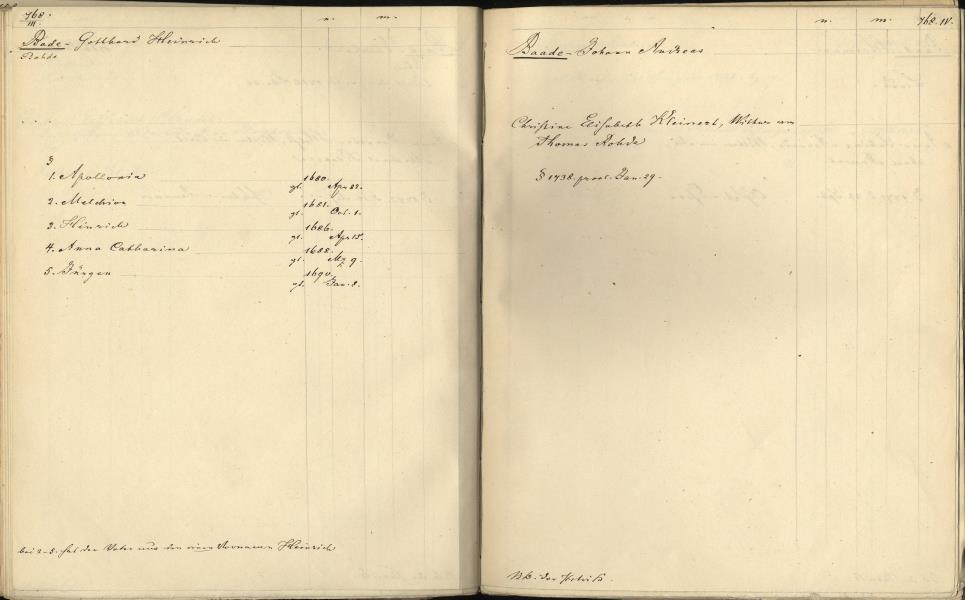 768.
III.
n. m.
Bade - Gotthard Heinrich
Bohde
§
1. Apollonia 1680.
gt. Apr 22.
2. Melchior 1681.
gt. Oct. 1.
3. Hinrich 1686.
gt. Apr 15.
4. Anna Catharina 1688.
gt. Mz 9.
5. Jürgen 1690.
gt. Jan. 8.
bei 2-5. hat der Vater nur den einen Vornamen Heinrich
n. m. 768. IV.
Baade - Johann Andreas
Christine Elisabeth Kleinert, Wittwe von
Thomas Rohde
§ 1738. procl. Jan. 29.